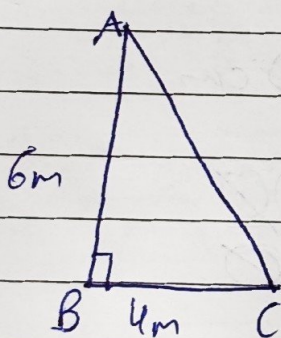 A
6m
B 4m C